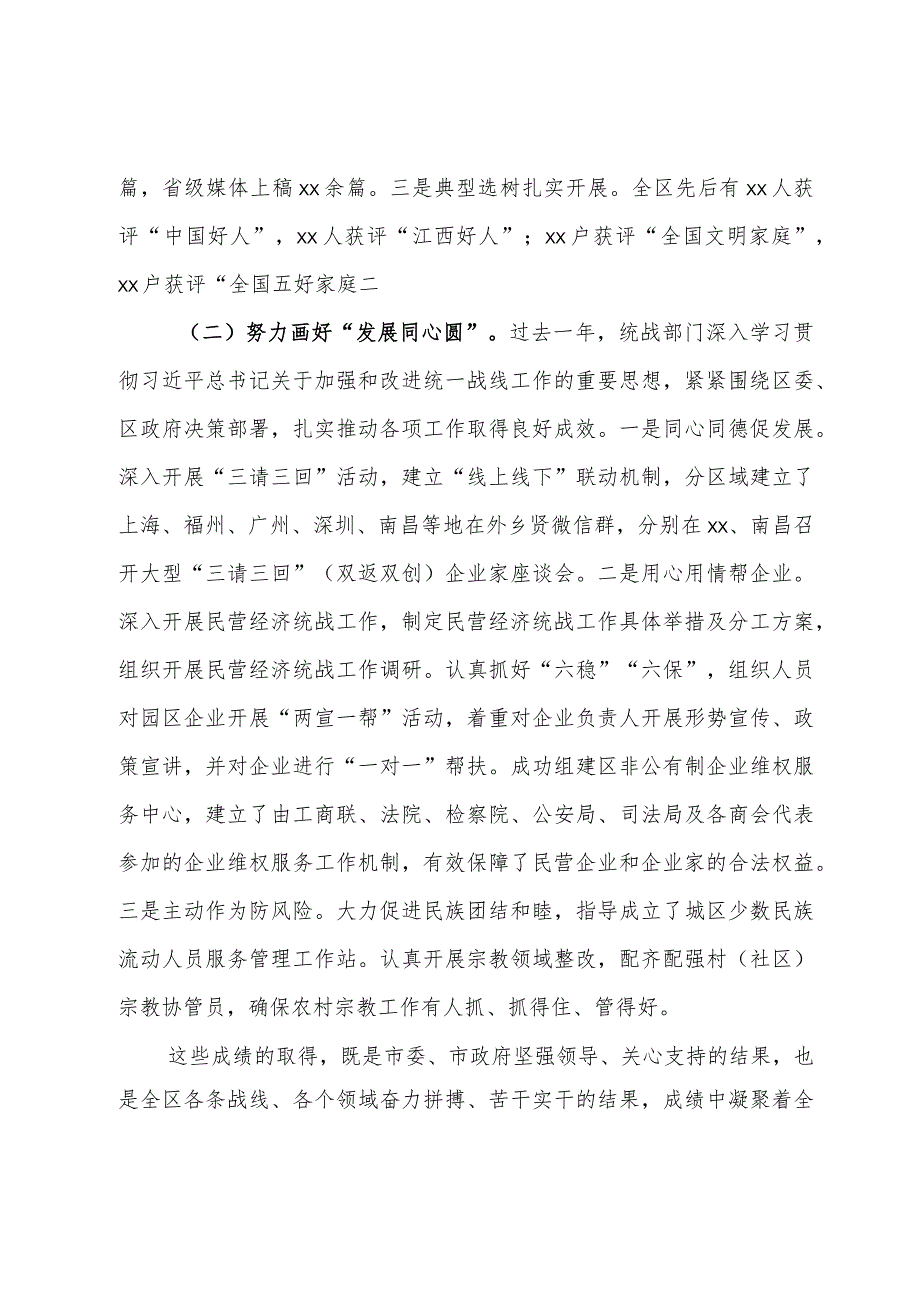 篇，省级媒体上稿xx余篇。三是典型选树扎实开展。全区先后有xx人获
评“中国好人”，xx人获评“江西好人”；xx户获评“全国文明家庭”，
xx户获评“全国五好家庭二
（二）努力画好“发展同心圆”。过去一年，统战部门深入学习贯
彻习近平总书记关于加强和改进统一战线工作的重要思想，紧紧围绕区委、
区政府决策部署，扎实推动各项工作取得良好成效。一是同心同德促发展。
深入开展“三请三回”活动，建立“线上线下”联动机制，分区域建立了
上海、福州、广州、深圳、南昌等地在外乡贤微信群，分别在xx、南昌召
开大型“三请三回”（双返双创）企业家座谈会。二是用心用情帮企业。
深入开展民营经济统战工作，制定民营经济统战工作具体举措及分工方案，
组织开展民营经济统战工作调研。认真抓好“六稳”“六保”，组织人员
对园区企业开展“两宣一帮”活动，着重对企业负责人开展形势宣传、政
策宣讲，并对企业进行“一对一”帮扶。成功组建区非公有制企业维权服
务中心，建立了由工商联、法院、检察院、公安局、司法局及各商会代表
参加的企业维权服务工作机制，有效保障了民营企业和企业家的合法权益。
三是主动作为防风险。大力促进民族团结和睦，指导成立了城区少数民族
流动人员服务管理工作站。认真开展宗教领域整改，配齐配强村（社区）
宗教协管员，确保农村宗教工作有人抓、抓得住、管得好。
这些成绩的取得，既是市委、市政府坚强领导、关心支持的结果，也
是全区各条战线、各个领域奋力拼搏、苦干实干的结果，成绩中凝聚着全